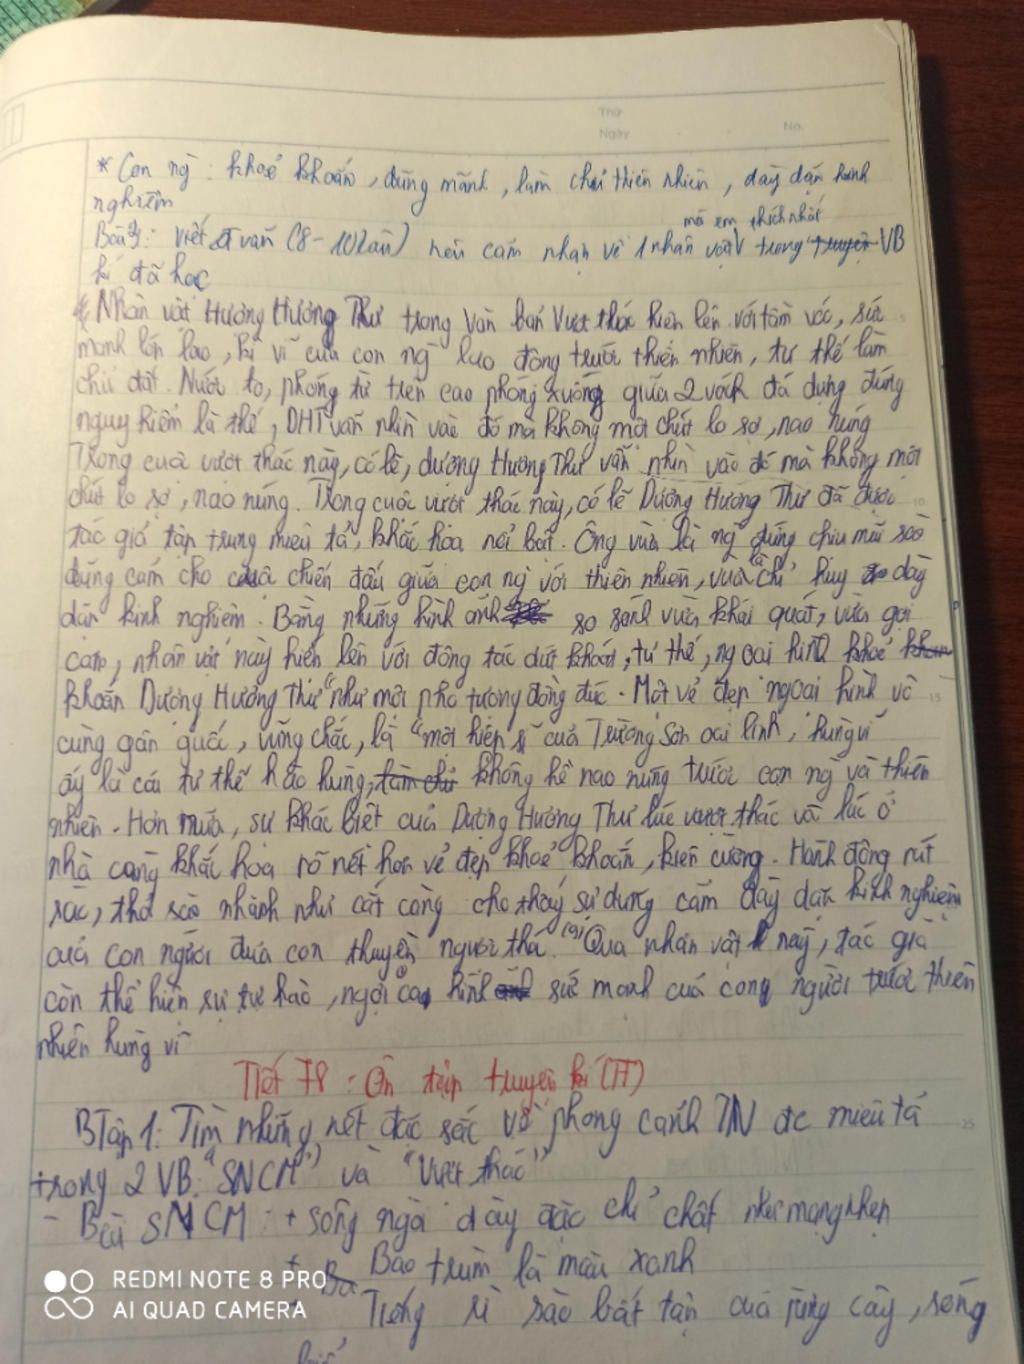 Thứ
Ngày
No.
* Con ng : khoẻ khoắn, dũng mãnh, làm chủ thiên nhiên, dày dặn kinh
nghiệm
mà em thích nhất
Bài 3: Viết đ văn (8-10 câu) nêu cảm nhận về 1 nhân vật trong VB
kí đã học
Nhân vật Hương Hương Thư trong văn bản Vượt thác hiên lên với tầm vóc, sức
mạnh lớn lao, kì vĩ của con ng lao động trước thiên nhiên, tư thế làm
chủ đất. Nước to, phóng từ trên cao phóng xuống giữa 2 vách đá dựng đứng
nguy hiểm là thế, DHT vẫn nhìn vào đó mà không một chút lo sợ, nao núng
Trong cuộc vượt thác này, có lẽ, dương Hương Thư vẫn nhìn vào đó mà không một
chút lo sợ, nao núng. Trong cuộc vượt thác này, có lẽ Dương Hương Thư đã được
10
tác giả tập trung miêu tả, khắc hoạ nổi bật. Ông vừa là ng đứng chịu mũi sào
dũng cảm cho cuộc chiến đấu giữa con ng với thiên nhiên, vừa là chỉ huy dày
dặn kinh nghiệm. Bằng những hình ảnh so sánh vừa khái quát, vừa gợi
cảm, nhân vật này hiện lên với động tác dứt khoát, tư thế, ngoại hình khoẻ
khoắn Dương Hương Thư "như một pho tượng đồng đúc. Một vẻ đẹp ngoại hình vô
15
cùng gân guốc, vững chắc, là "một hiệp sĩ của Trường Sơn oai linh, hùng vĩ
ấy là cái tư thế hào hùng, không hề nao núng trước con ng và thiên
nhiên. Hơn nữa, sự khác biệt của Dương Hương Thư lúc vượt thác và lúc ở
nhà càng khắc hoạ rõ nét hơn vẻ đẹp khoẻ khoắn, kiên cường. Hành động rút
sào, thả sào nhanh như cắt càng cho thấy sự dũng cảm dày dặn kinh nghiệm
của con người đưa con thuyền ngược thá. (9) Qua nhân vật này, tác giả
còn thể hiện sự tự hào, ngợi ca sức mạnh của con người trước thiên
nhiên hùng vĩ
Tiết 78: Ôn tập truyện kí (TT)
BTập 1: Tìm những nét đặc sắc về phong cảnh TN đc miêu tả
25
trong 2 VB: "SNCM" và "Vượt thác"
- Bài SNCM: + sông ngòi dày đặc chi chít như mạng nhện
+ Bao trùm là màu xanh
Tiếng rì rào bất tận của rừng cây, sóng
REDMI NOTE 8 PRO
AI QUAD CAMERA